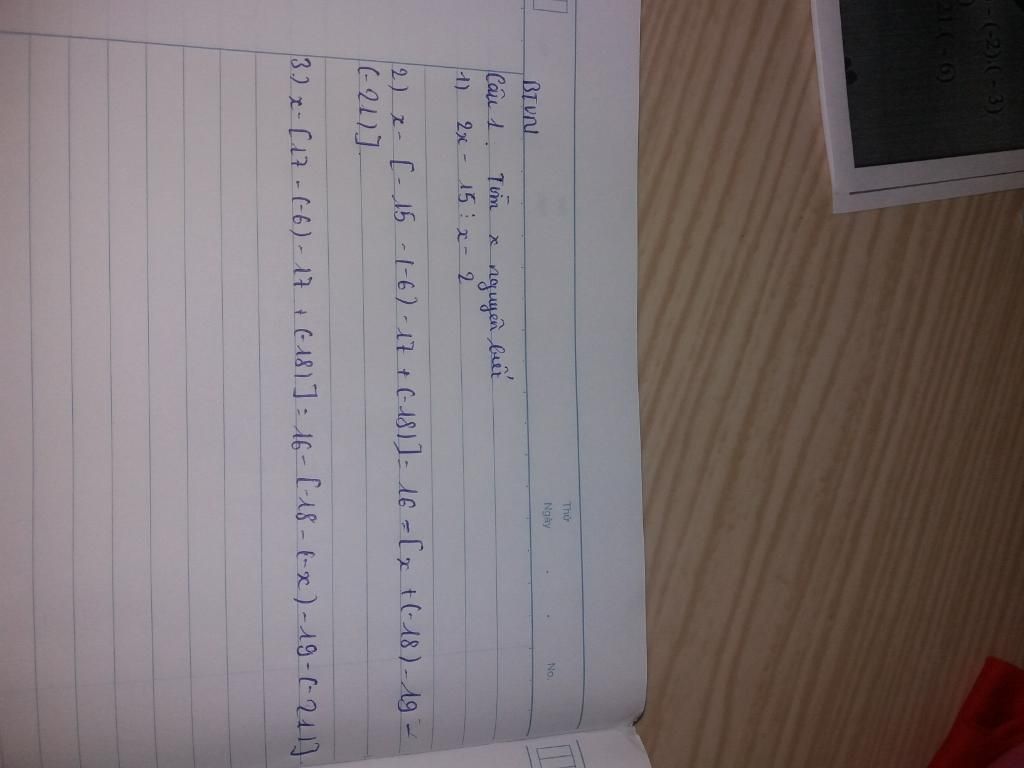 Thứ
Ngày . . No.
BTVN
Câu 1: Tìm x nguyên biết
1) 2x - 15 ⋮ x - 2
2) x - [-15 - (-6) - 17 + (-18)] = 16 = [x + (-18) - 19 -
(-21)]
3) x - [17 - (-6) - 17 + (-18)] = 16 - [-18 - (-x) - 19 - (-21)]
- (-2)(-3)